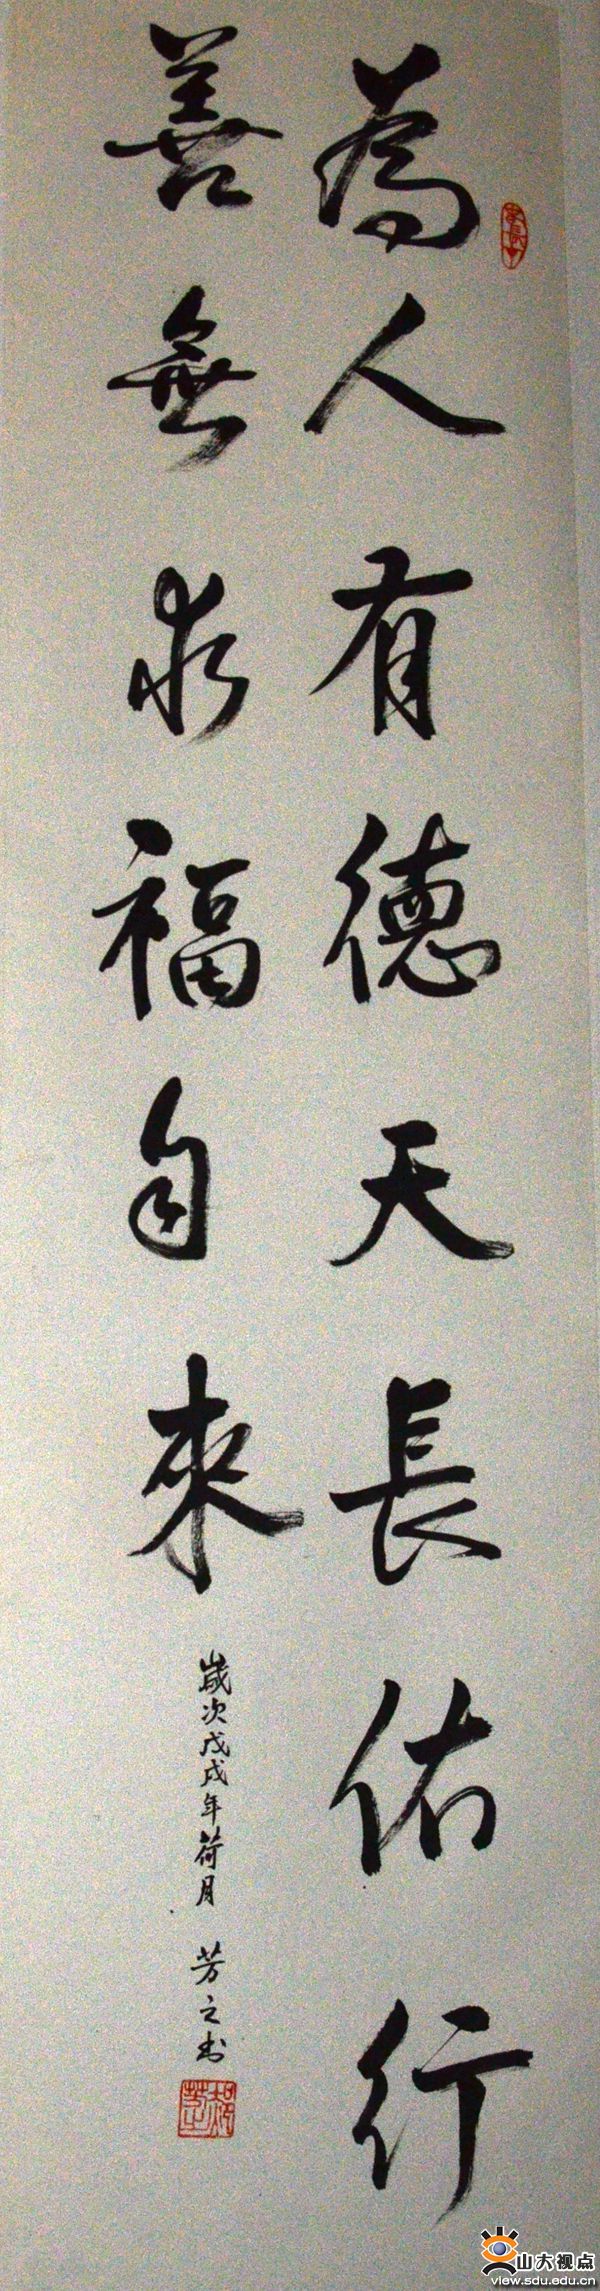 為人有德天長佑行
善無求福自來
歲次戊戌年荷月 芳之书
山大视点
view.sdu.edu.cn